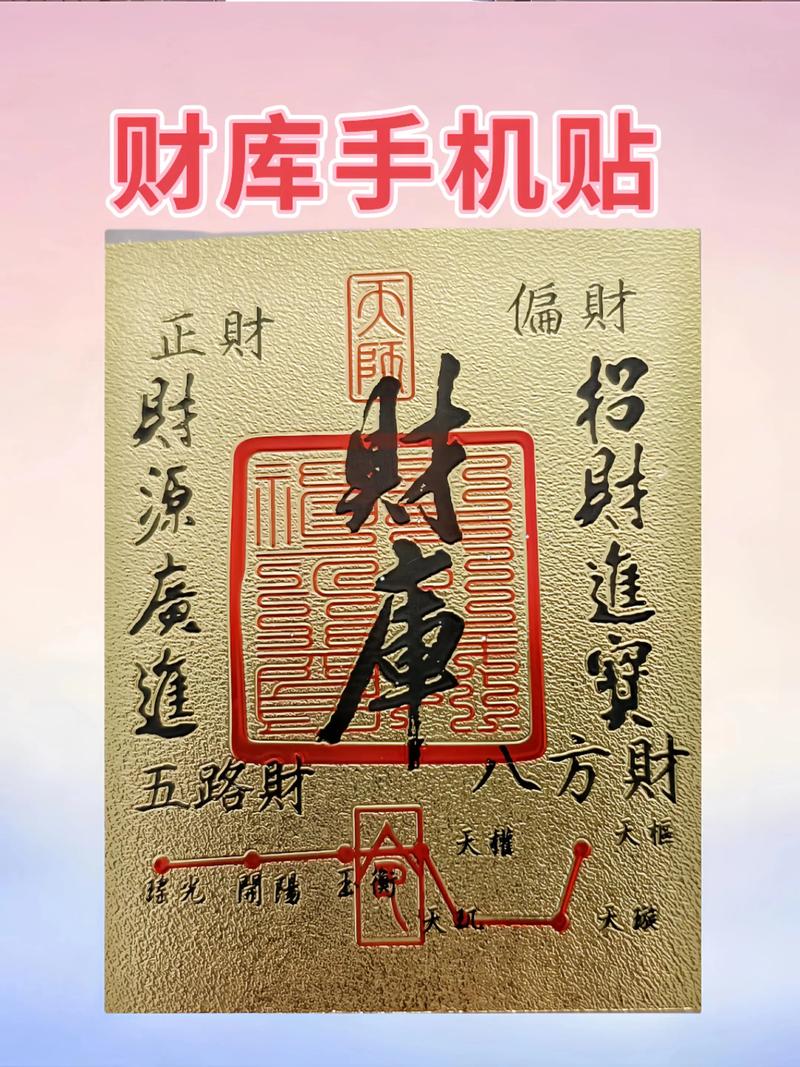 财库手机贴
天師
正財
偏財
財源廣進
財庫
招財進寶
五路財
八方財
天權
天樞
瑤光
開陽
玉衡
天璣
天璇
命